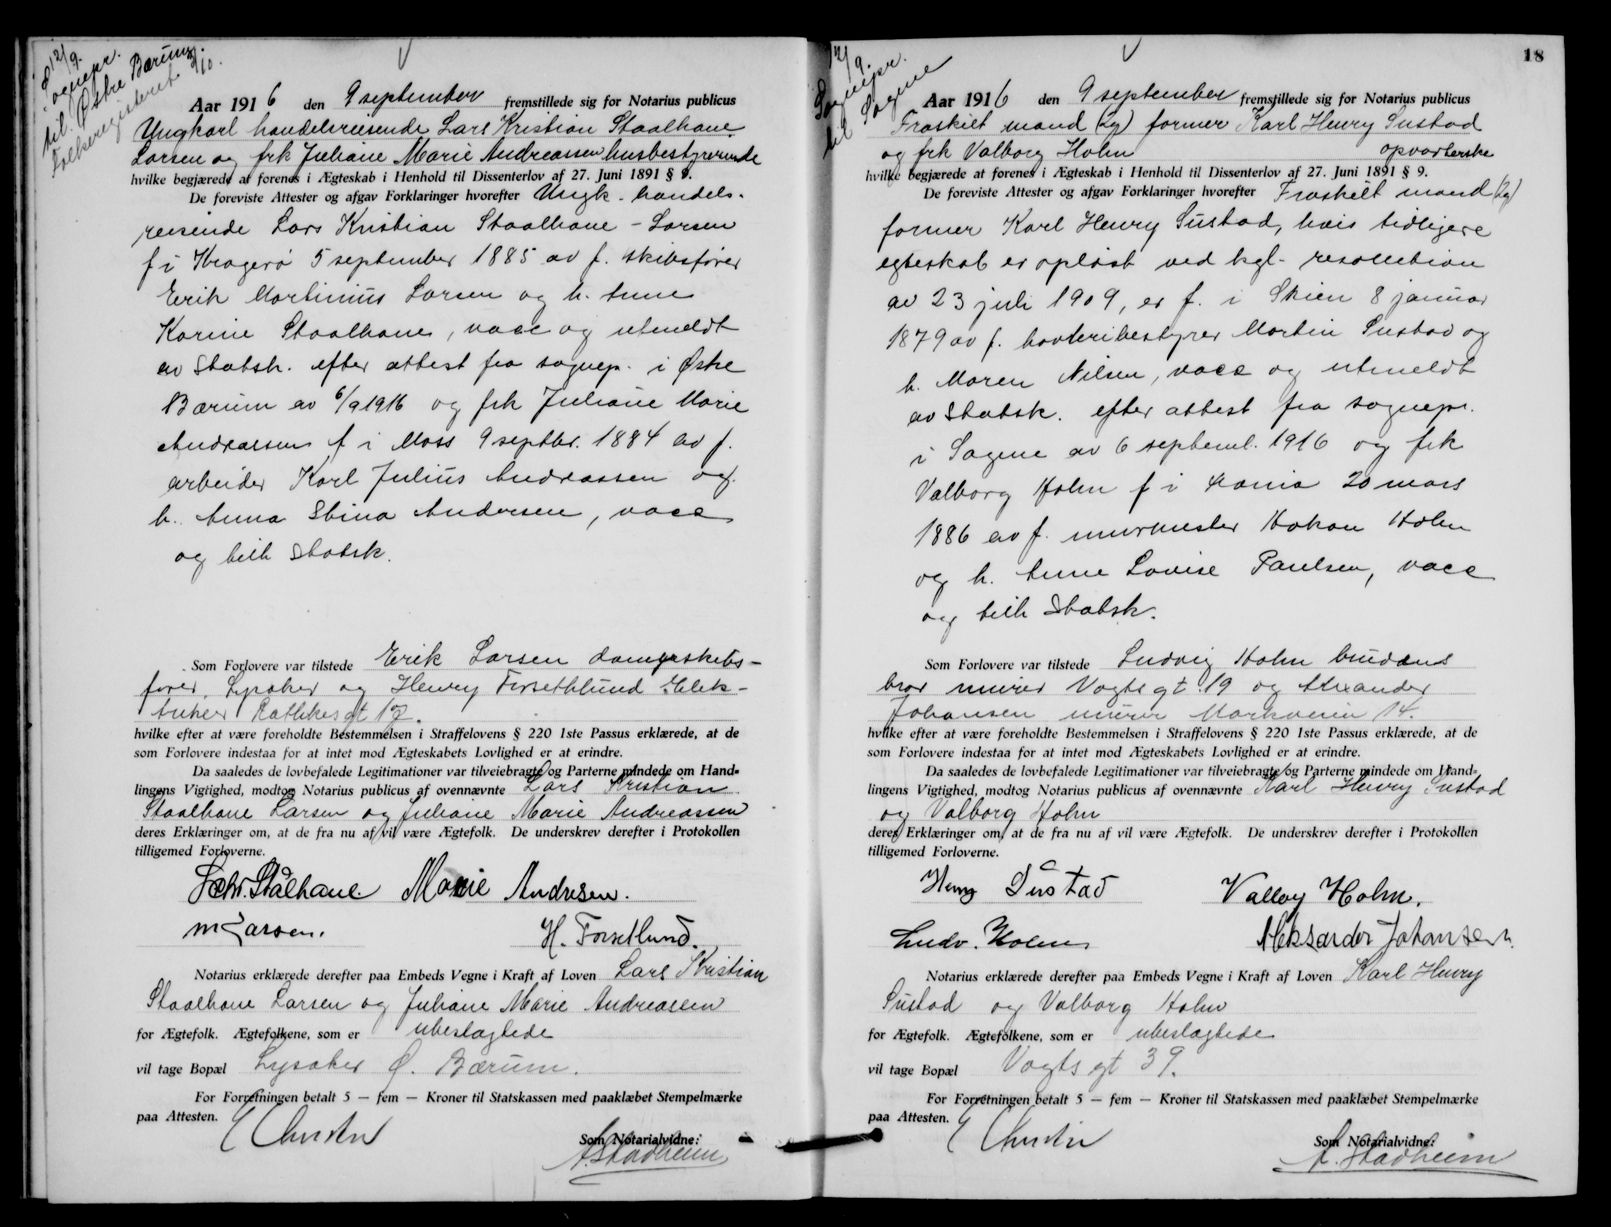 12/9.
sognepr.
til Østre Bærum
Folkeregisteret /10.
Aar 1916 den 9 september fremstillede sig for Notarius publicus
Ungkarl handelsreisende Lars Kristian Staalhane
Larsen og frk Juliane Marie Andreassen husbestyrerinde
hvilke begjærede at forenes i Ægteskab i Henhold til Dissenterlov af 27. Juni 1891 § 9.
De foreviste Attester og afgav Forklaringer hvorefter Ungk. handels-
reisende Lars Kristian Staalhane - Larsen
f i Kragerø 5 september 1885 av f. skibsfører
Erik Martinius Larsen og h. Anne
Karine Staalhane, vacc og utmeldt
av Statsk. efter attest fra sognep. i Østre
Bærum av 6/9 1916 og frk Juliane Marie
Andreassen f i Moss 9 septbr. 1884 av f.
arbeider Karl Julius Andreassen og
h. Anna Stina Andersen, vacc
og tilh Statsk.
Som Forlovere var tilstede Erik Larsen dampskibs-
fører, Lysaker og Henry Forsethlund Elek-
triker Rathkesgt 17.
hvilke efter at være foreholdte Bestemmelsen i Straffelovens § 220 1ste Passus erklærede, at de
som Forlovere indestaa for at intet mod Ægteskabets Lovlighed er at erindre.
Da saaledes de lovbefalede Legitimationer var tilveiebragte og Parterne mindede om Hand-
lingens Vigtighed, modtog Notarius publicus af ovennævnte Lars Kristian
Staalhane Larsen og Juliane Marie Andreassen
deres Erklæringer om, at de fra nu af vil være Ægtefolk. De underskrev derefter i Protokollen
tilligemed Forloverne.
L Chr. Stålhane Marie Andresen.
M Larsen. H. Forsethlund.
Notarius erklærede derefter paa Embeds Vegne i Kraft af Loven Lars Kristian
Staalhane Larsen og Juliane Marie Andreassen
for Ægtefolk. Ægtefolkene, som er ubeslagtede
vil tage Bopæl Lysaker Ø. Bærum.
For Forretningen betalt 5 — fem — Kroner til Statskassen med paaklæbet Stempelmærke
paa Attesten.
Som Notarialvidne:
A. Stadheim
18
12/9.
Sognepr.
til Sagene
Aar 1916 den 9 september fremstillede sig for Notarius publicus
Fraskilt mand (kgl) former Karl Henry Sustad
og frk Valborg Holm opvarterske
hvilke begjærede at forenes i Ægteskab i Henhold til Dissenterlov af 27. Juni 1891 § 9.
De foreviste Attester og afgav Forklaringer hvorefter Fraskilt mand (kg)
former Karl Henry Sustad, hvis tidligere
egteskab er opløst ved kgl. resolution
av 23 juli 1909, er f. i Skien 8 januar
1879 av f. bestyrer Martin Sustad og
h. Maren Nilsen, vacc og utmeldt
av Statsk. efter attest fra sognepr.
i Sagene av 6 septembr. 1916 og frk
Valborg Holm f i Krania 20 mars
1886 av f. murmester Hakon Holm
og h. Anne Lovise Paulsen, vacc
og tilh Statsk.
Som Forlovere var tilstede Ludvig Holm brudens
bror murer Vogtsgt 19 og Alexander
Johansen murer Markveien 14.
hvilke efter at være foreholdte Bestemmelsen i Straffelovens § 220 1ste Passus erklærede, at de
som Forlovere indestaa for at intet mod Ægteskabets Lovlighed er at erindre.
Da saaledes de lovbefalede Legitimationer var tilveiebragte og Parterne mindede om Hand-
lingens Vigtighed, modtog Notarius publicus af ovennævnte Karl Henry Sustad
og Valborg Holm
deres Erklæringer om, at de fra nu af vil være Ægtefolk. De underskrev derefter i Protokollen
tilligemed Forloverne.
Henry Sustad Valborg Holm.
Ludv. Holm Aleksander Johansen.
Notarius erklærede derefter paa Embeds Vegne i Kraft af Loven Karl Henry
Sustad og Valborg Holm
for Ægtefolk. Ægtefolkene, som er ubeslagtede
vil tage Bopæl Vogts gt 39.
For Forretningen betalt 5 — fem — Kroner til Statskassen med paaklæbet Stempelmærke
paa Attesten.
Som Notarialvidne:
A. Stadheim